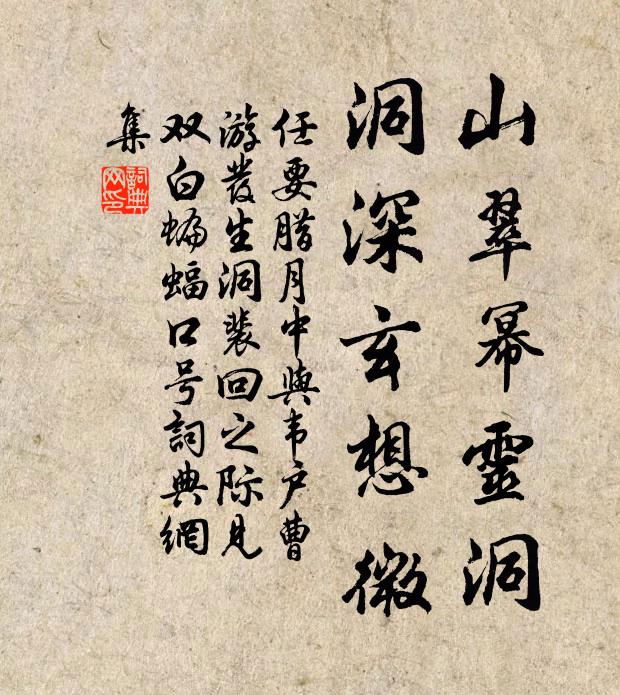 山翠幂靈洞
洞深玄想微
任要腊月中與韦户曹
游發生洞裴回之际见
双白蝙蝠口号詞典網
集
詞典
网印